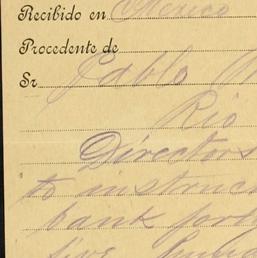 Recibido en Mexico
Procedente de
Sr Pablo
Rio
Directors
to instruc
bank
five